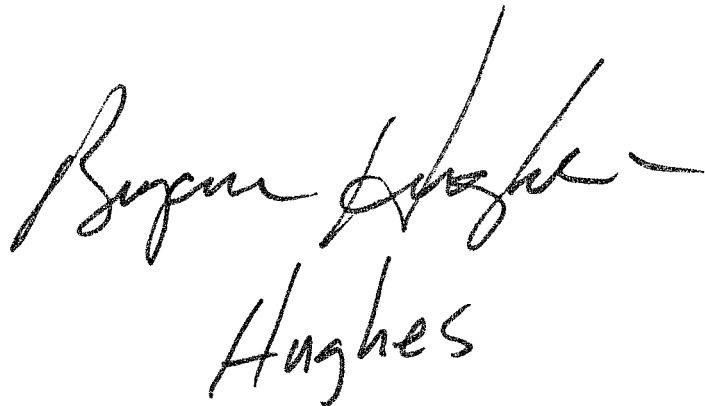 Bryan Hughes
Hughes